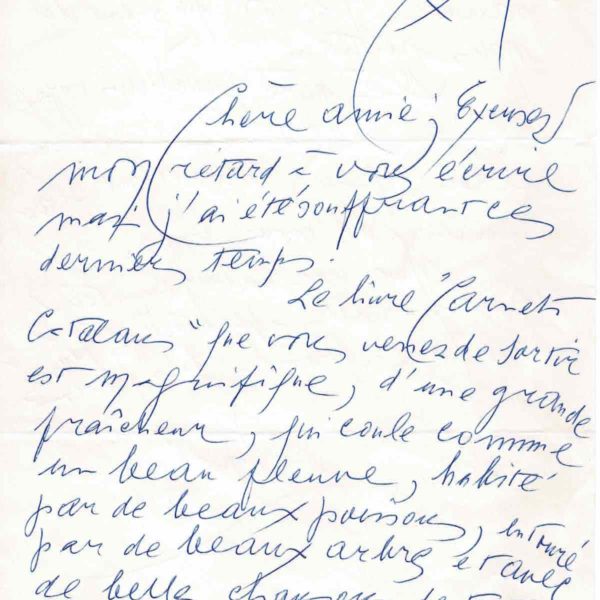 Chère amie, Excusez
mon retard à vous écrire
mais j'ai été souffrant ces
derniers temps.
Le livre "Carnets
Catalans" que vous venez de sortir
est magnifique, d'une grande
fraîcheur, qui coule comme
un beau fleuve, habité
par de beaux poissons, entouré
par de beaux arbres et avec
de belles chansons